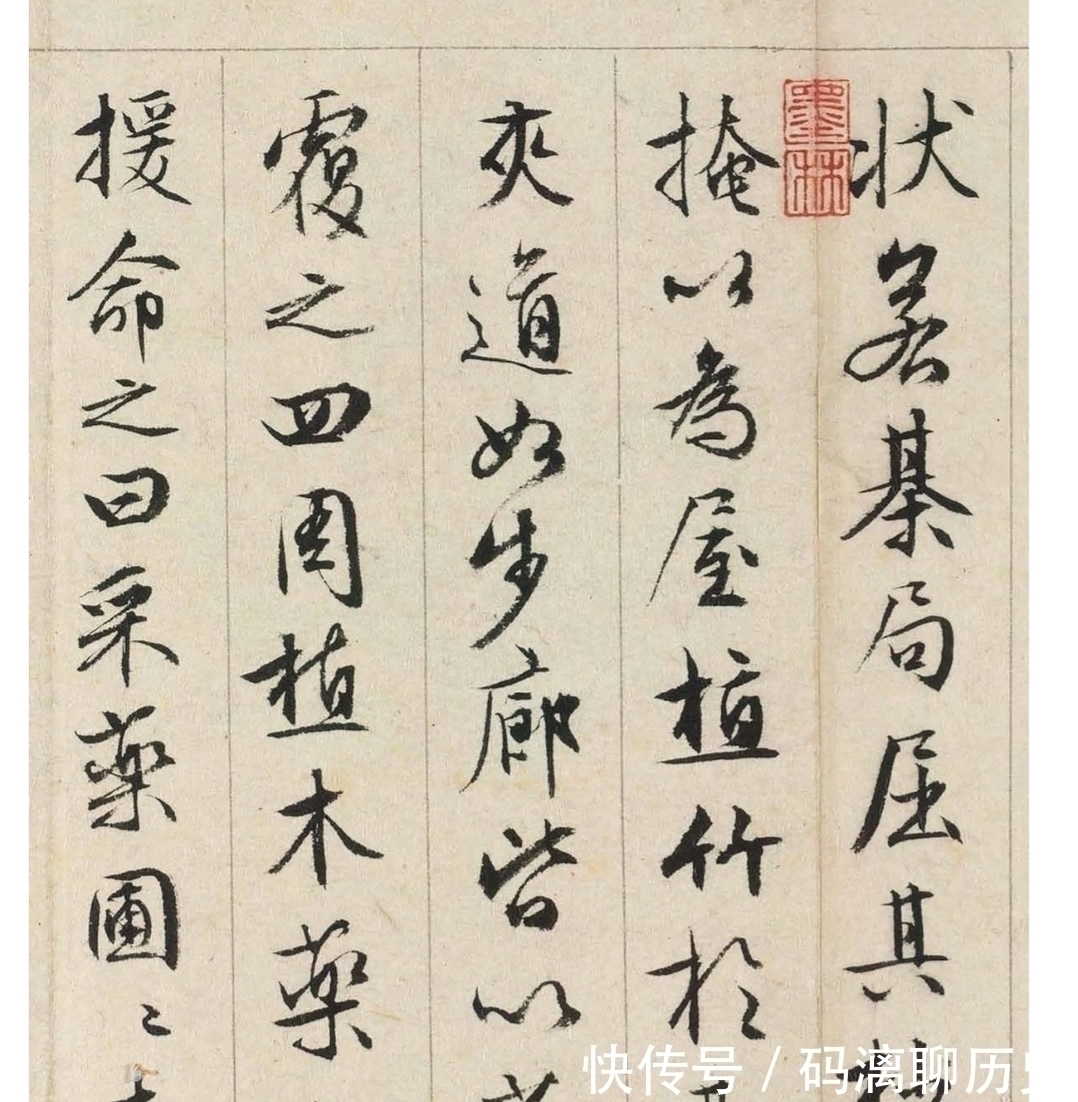 状若棊局屈其
掩以為屋植竹於
夾道如步廊皆以
覆之四周植木藥
援命之曰采藥圃〻
墨林
快传号 / 码漓聊历史